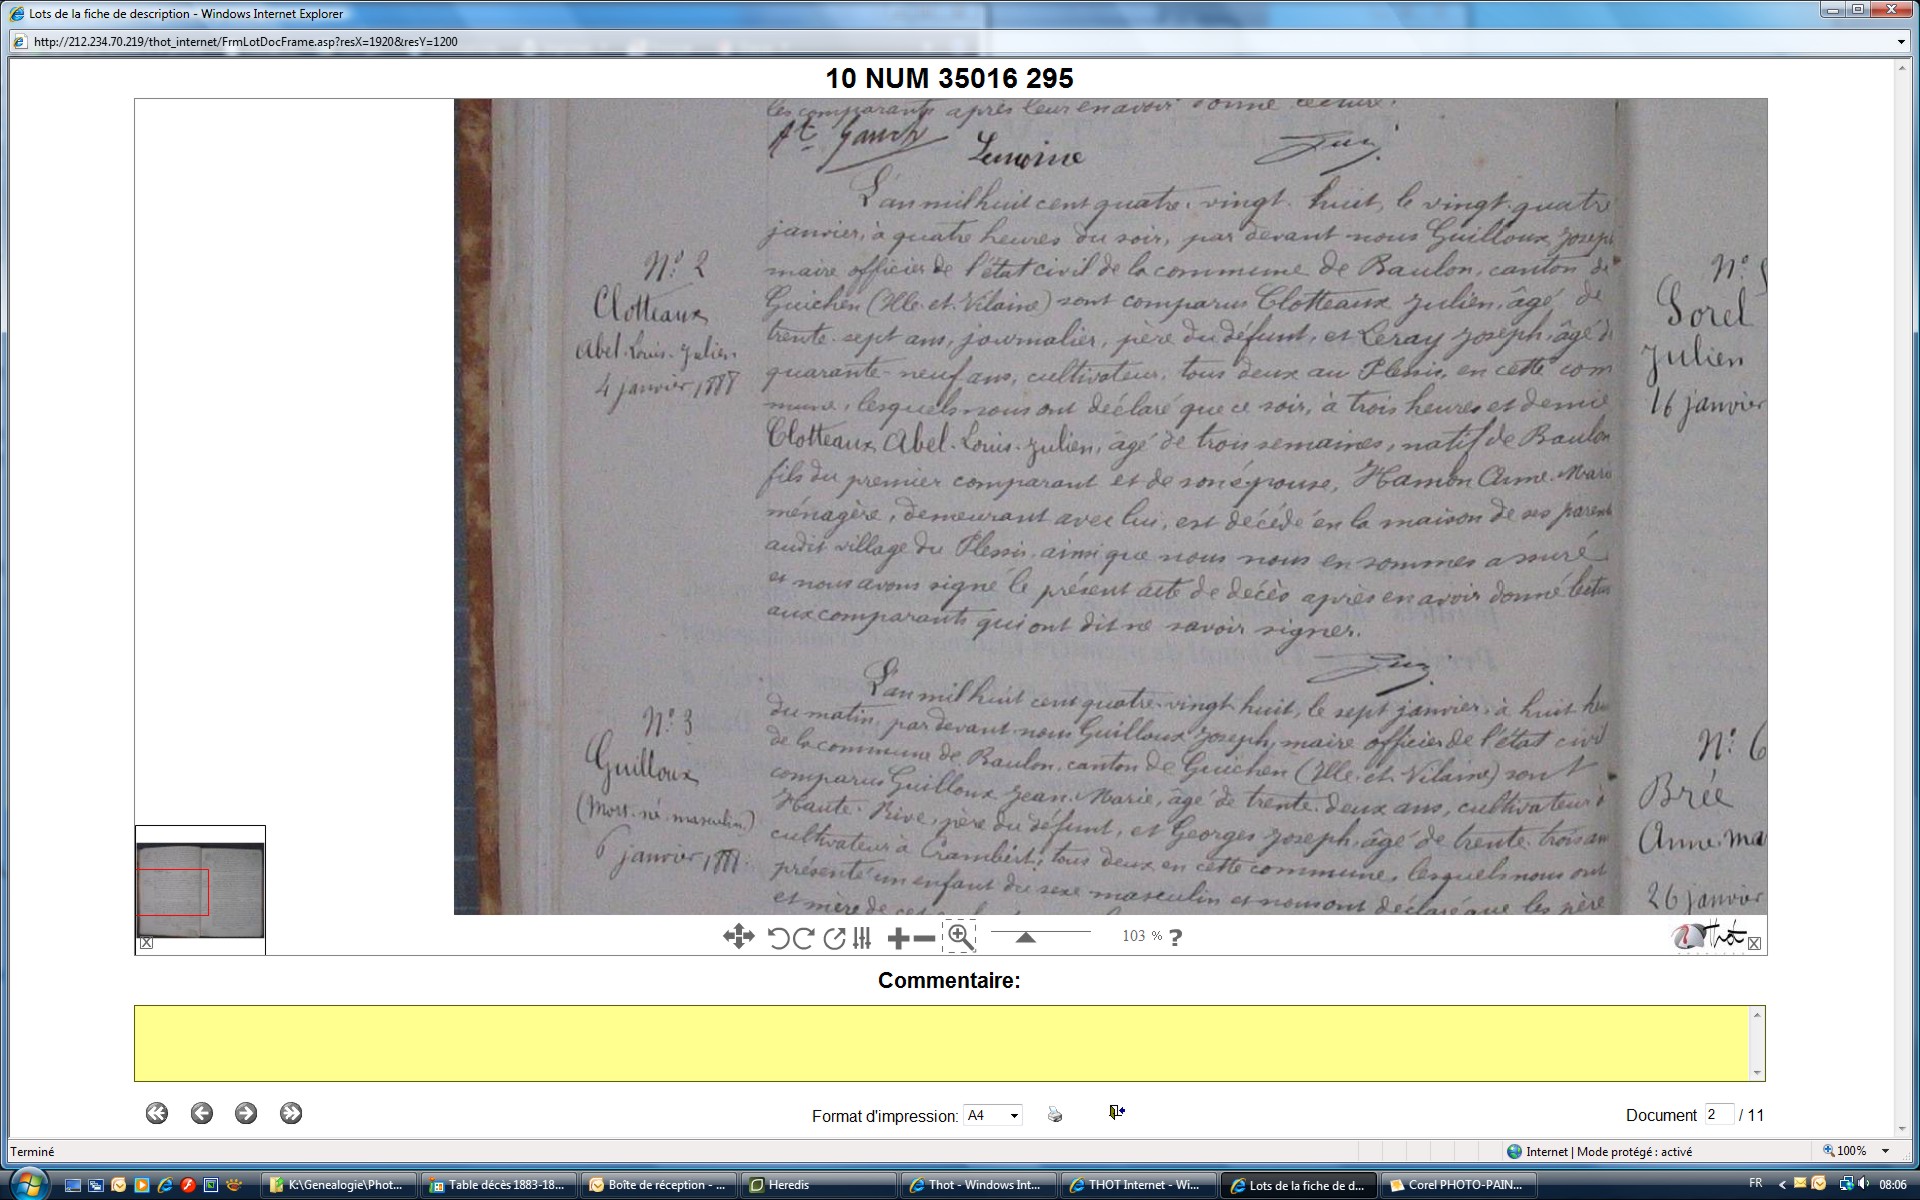 Lots de la fiche de description - Windows Internet Explorer
http://212.234.70.219/thot_internet/FrmLotDocFrame.asp?resX=1920&resY=1200
10 NUM 35016 295
les comparants après leur en avoir donné lecture.
Lemoine
L'an mil huit cent quatre-vingt-huit, le vingt-quatre
janvier, à quatre heures du soir, par devant nous Guilloux Joseph
maire officier de l'état civil de la commune de Baulon, canton de
Guichen (Ille-et-Vilaine) sont comparus Clotteaux Julien, âgé de
trente-sept ans, journalier, père du défunt, et Leray Joseph, âgé d
quarante-neuf ans, cultivateur, tous deux au Plessis, en cette com
mune, lesquels nous ont déclaré que ce soir, à trois heures et demie
Clotteaux Abel-Louis-Julien, âgé de trois semaines, natif de Baulon
fils du premier comparant et de son épouse, Hamon Anne-Marie
ménagère, demeurant avec lui, est décédé en la maison de ses parents
audit village du Plessis, ainsi que nous nous en sommes assuré
et nous avons signé le présent acte de décès après en avoir donné lectu
aux comparants qui ont dit ne savoir signer.
N° 2
Clotteaux
Abel-Louis-Julien.
4 janvier 1888
L'an mil huit cent quatre-vingt huit, le sept janvier, à huit heu
du matin, par devant nous Guilloux Joseph, maire officier de l'état civil
de la commune de Baulon, canton de Guichen (Ille-et-Vilaine) sont
comparus Guilloux Jean-Marie, âgé de trente-deux ans, cultivateur à
Haute-Rive, père du défunt, et Georges Joseph, âgé de trente-trois an
cultivateur à Crambert, tous deux en cette commune, lesquels nous ont
présenté un enfant du sexe masculin et nous ont déclaré que les père
et mère de
N° 3
Guilloux
(Mort-né masculin)
6 janvier 1888
N°
Sorel
Julien
16 janvier
N° 6
Brée
Anne-Ma
26 janvier
103 %
?
Thot
Commentaire:
Format d'impression: A4
Document 2 / 11
Terminé
Internet | Mode protégé : activé
100%
K:\Genealogie\Phot...
Table décès 1883-18...
Boîte de réception - ...
Heredis
Thot - Windows Int...
THOT Internet - Wi...
Lots de la fiche de d...
Corel PHOTO-PAIN...
FR
08:06